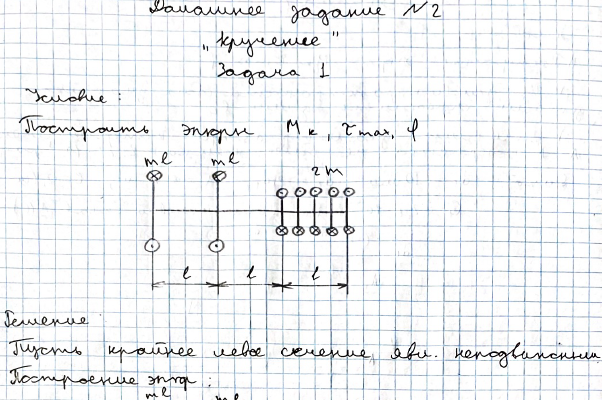 Домашнее задание №2
"Кручение"
Задача 1
Условие:
Построить эпюры Mк, τmax, φ
ml ml 2m
l l l
Решение
Пусть крайнее левое сечение явл. неподвижным
Построение эпюр:
ml ml